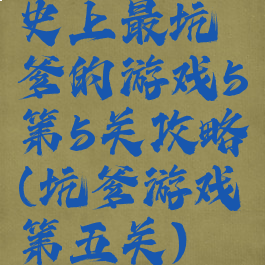 史上最坑
爹的游戏5
第5关攻略
(坑爹游戏
第五关)